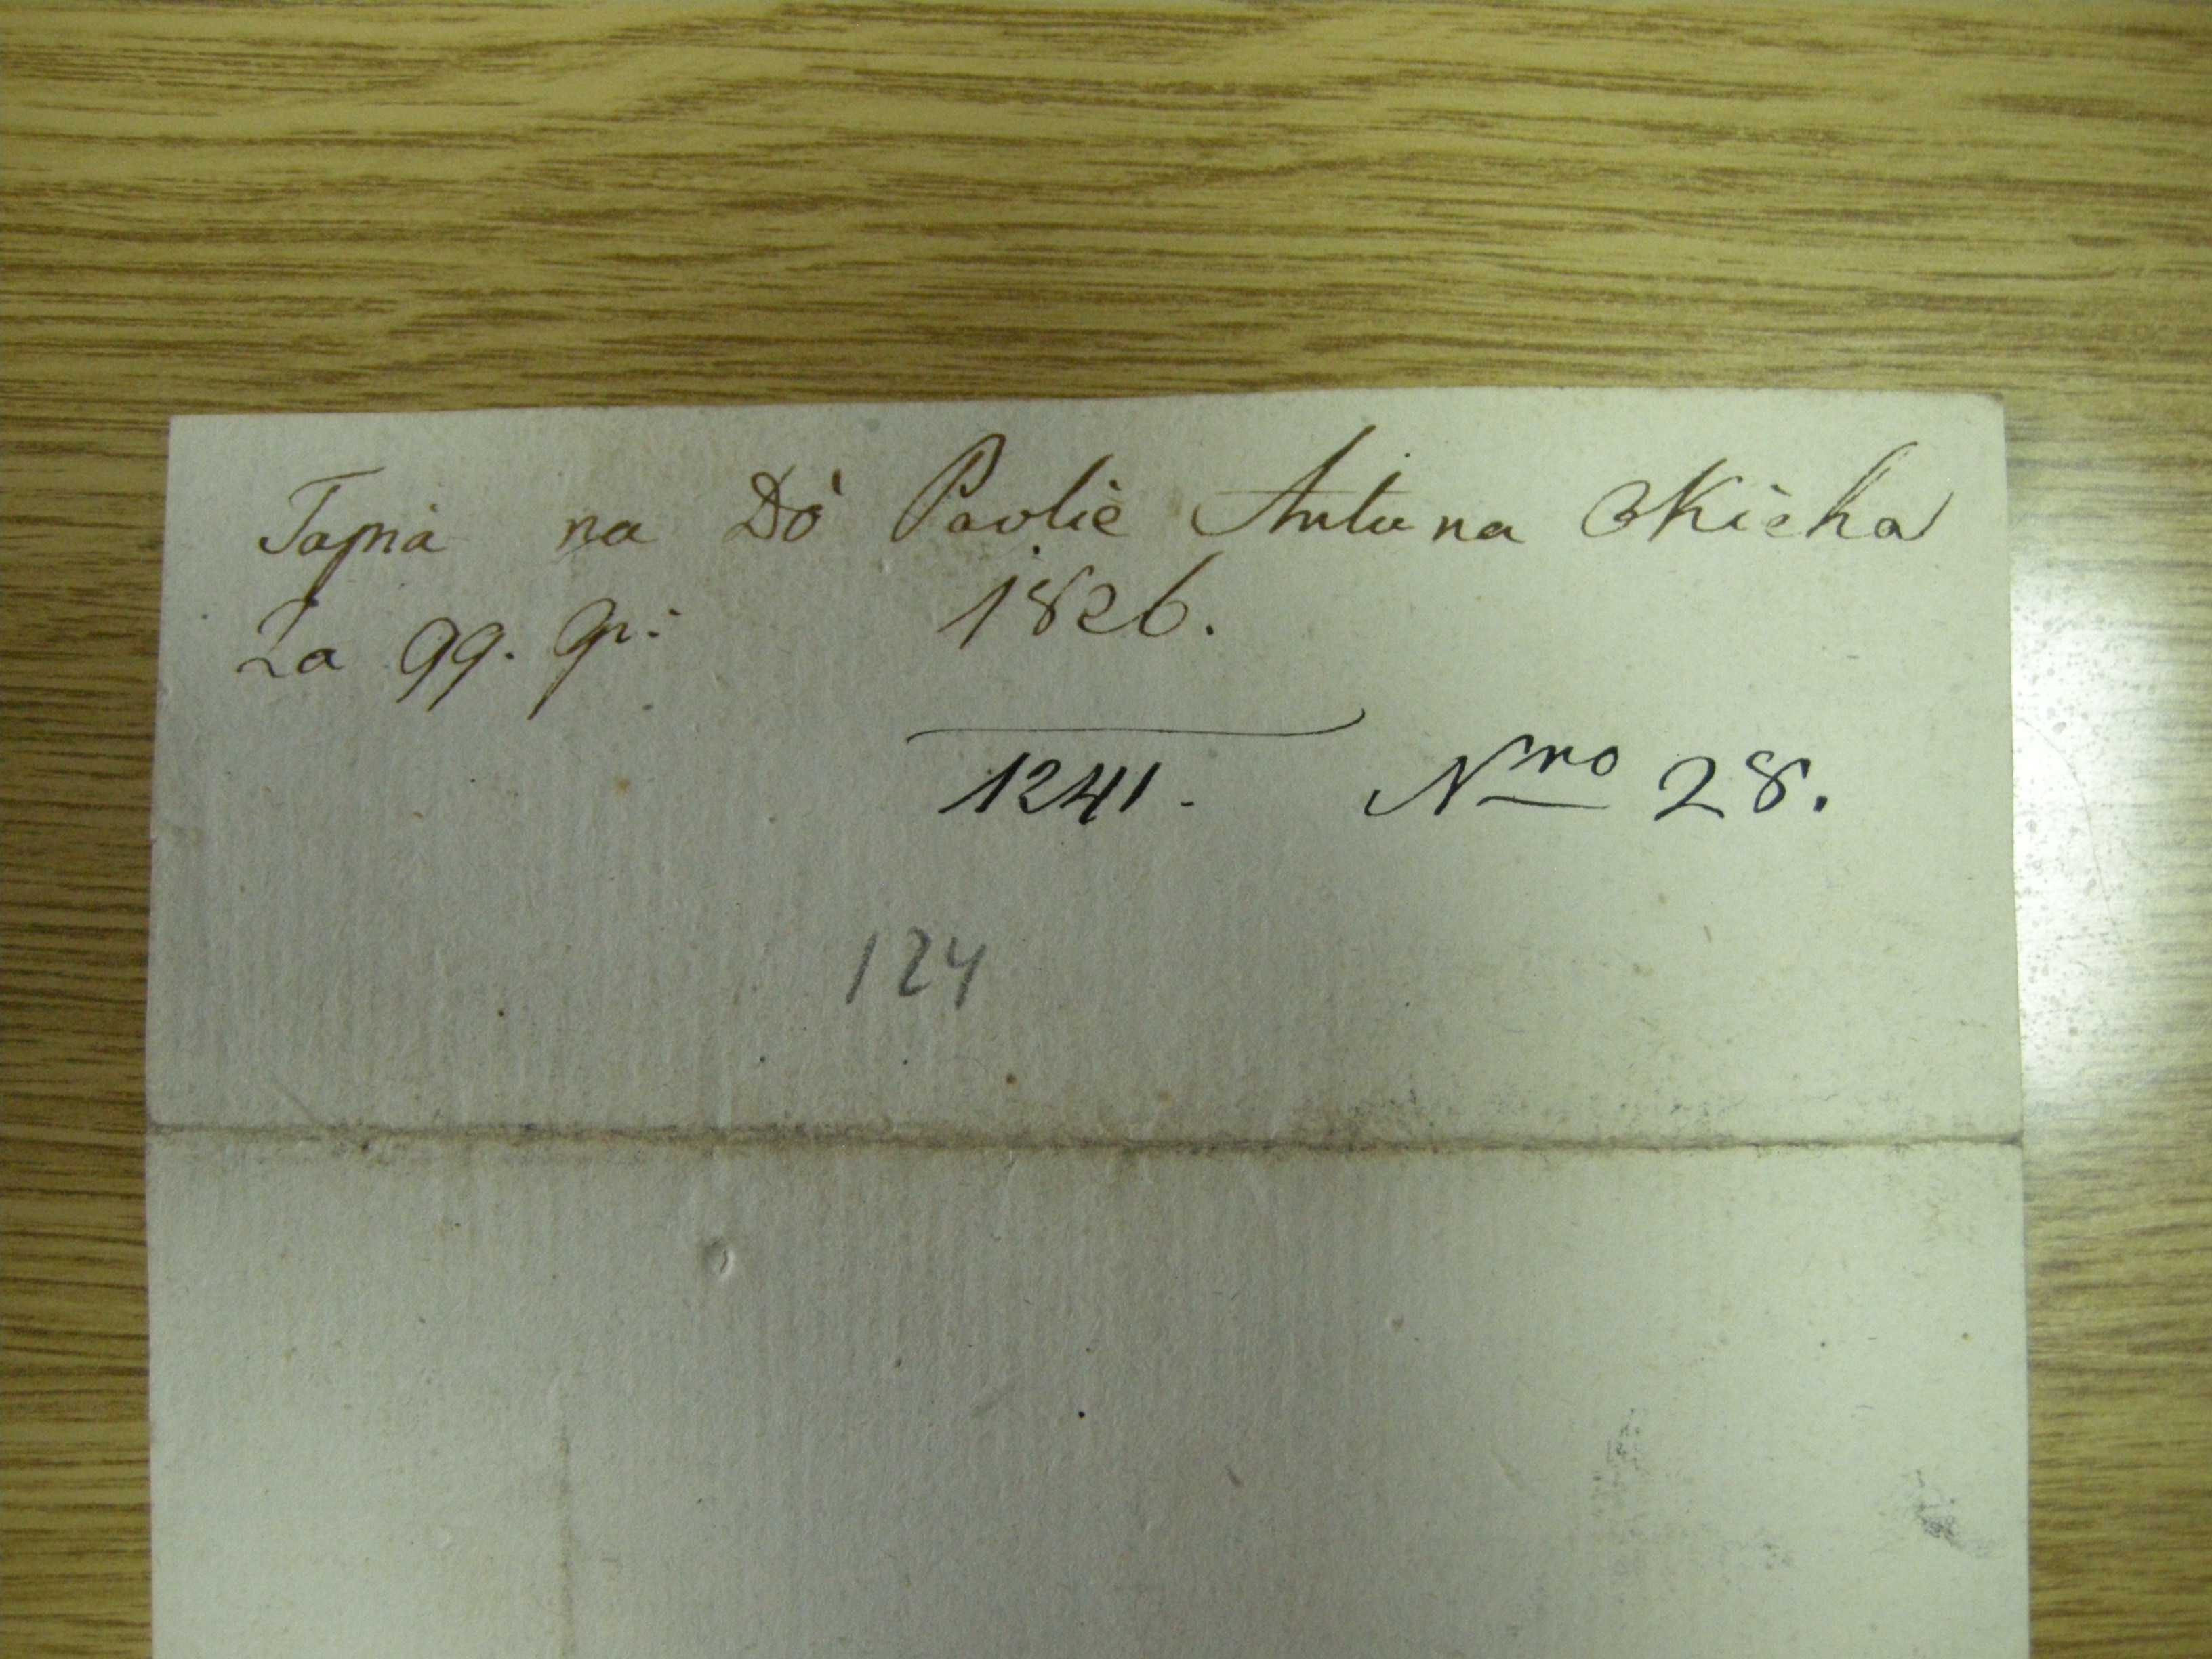 Tapia na Dò Pavlie Antuna Nicha
za 99. gr: 1826.
1241. Nro 28.
124